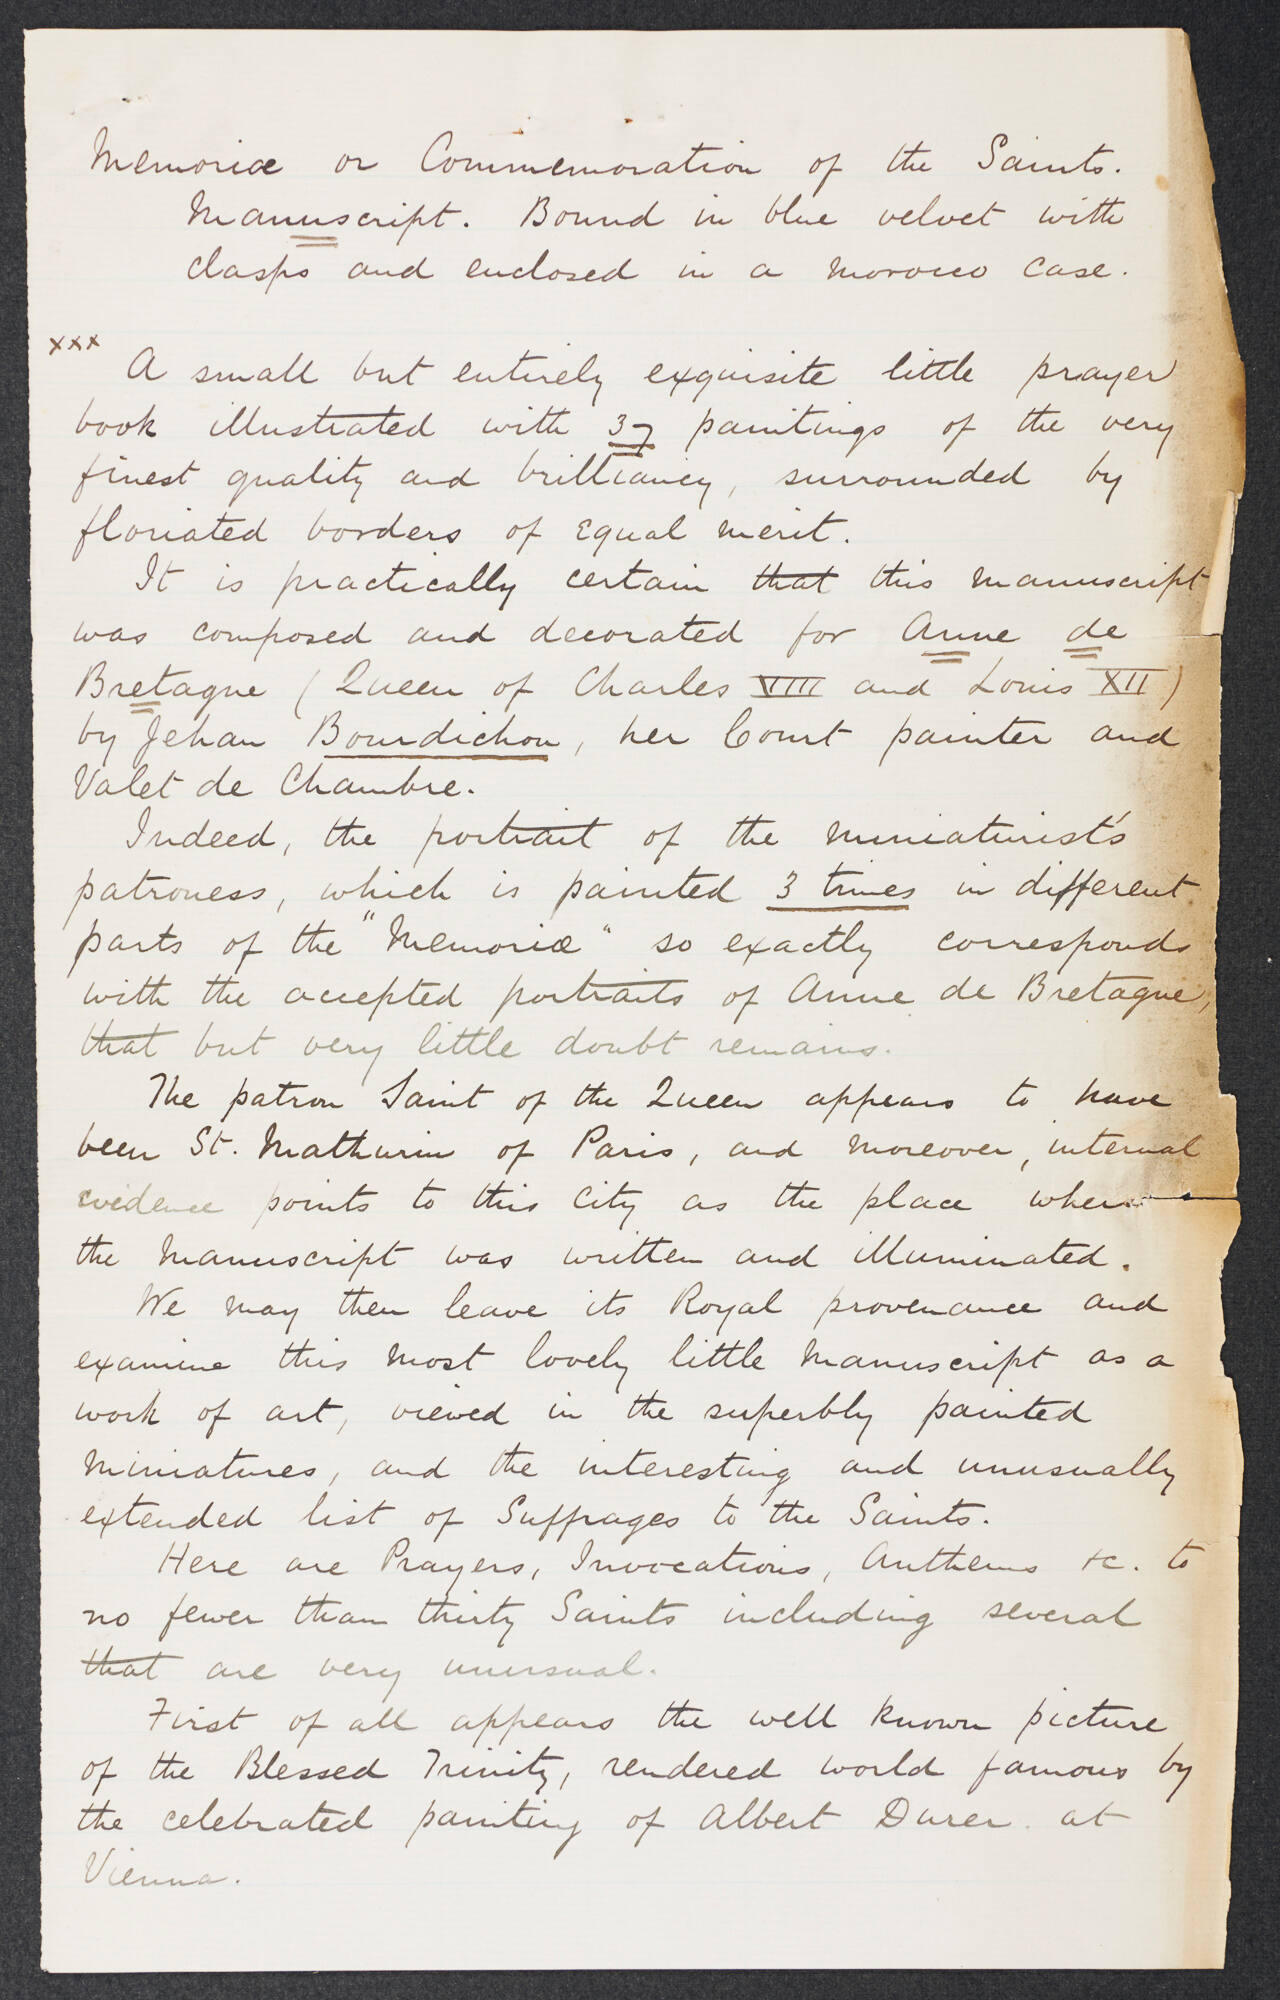 Memoriæ or Commemoration of the Saints.
Manuscript. Bound in blue velvet with
clasps and enclosed in a morocco case.
xxx
A small but entirely exquisite little prayer
book illustrated with 37 paintings of the very
finest quality and brilliancy, surrounded by
floriated borders of equal merit.
It is practically certain that this manuscript
was composed and decorated for Anne de
Bretagne (Queen of Charles VIII and Louis XII)
by Jehan Bourdichon, her Court painter and
Valet de Chambre.
Indeed, the portrait of the miniaturist's
patroness, which is painted 3 times in different
parts of the "Memoriæ" so exactly corresponds
with the accepted portraits of Anne de Bretagne,
that but very little doubt remains.
The patron Saint of the Queen appears to have
been St. Mathurin of Paris, and moreover, internal
evidence points to this City as the place where
the Manuscript was written and illuminated.
We may then leave its Royal provenance and
examine this most lovely little Manuscript as a
work of art, viewed in the superbly painted
miniatures, and the interesting and unusually
extended list of Suffrages to the Saints.
Here are Prayers, Invocations, Anthems &c. to
no fewer than thirty Saints including several
that are very unusual.
First of all appears the well known picture
of the Blessed Trinity, rendered world famous by
the celebrated painting of Albert Durer at
Vienna.